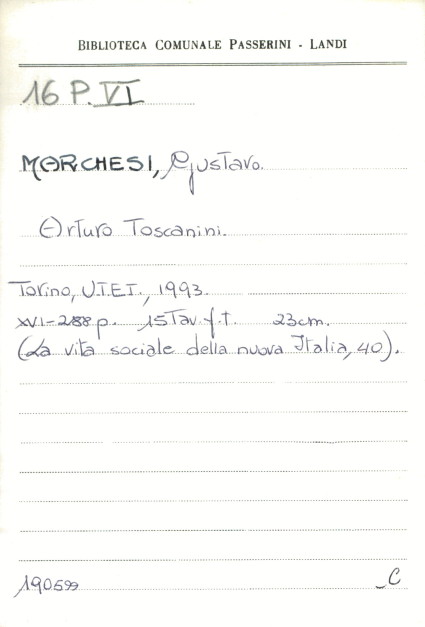 BIBLIOTECA COMUNALE PASSERINI - LANDI
16 P. VI
MARCHESI, Gustavo.
Arturo Toscanini.
Torino, U.T.E.T., 1993.
XVI-288 p. 15 Tav. f.t. 23cm.
(La vita sociale della nuova Italia, 40).
190599
C